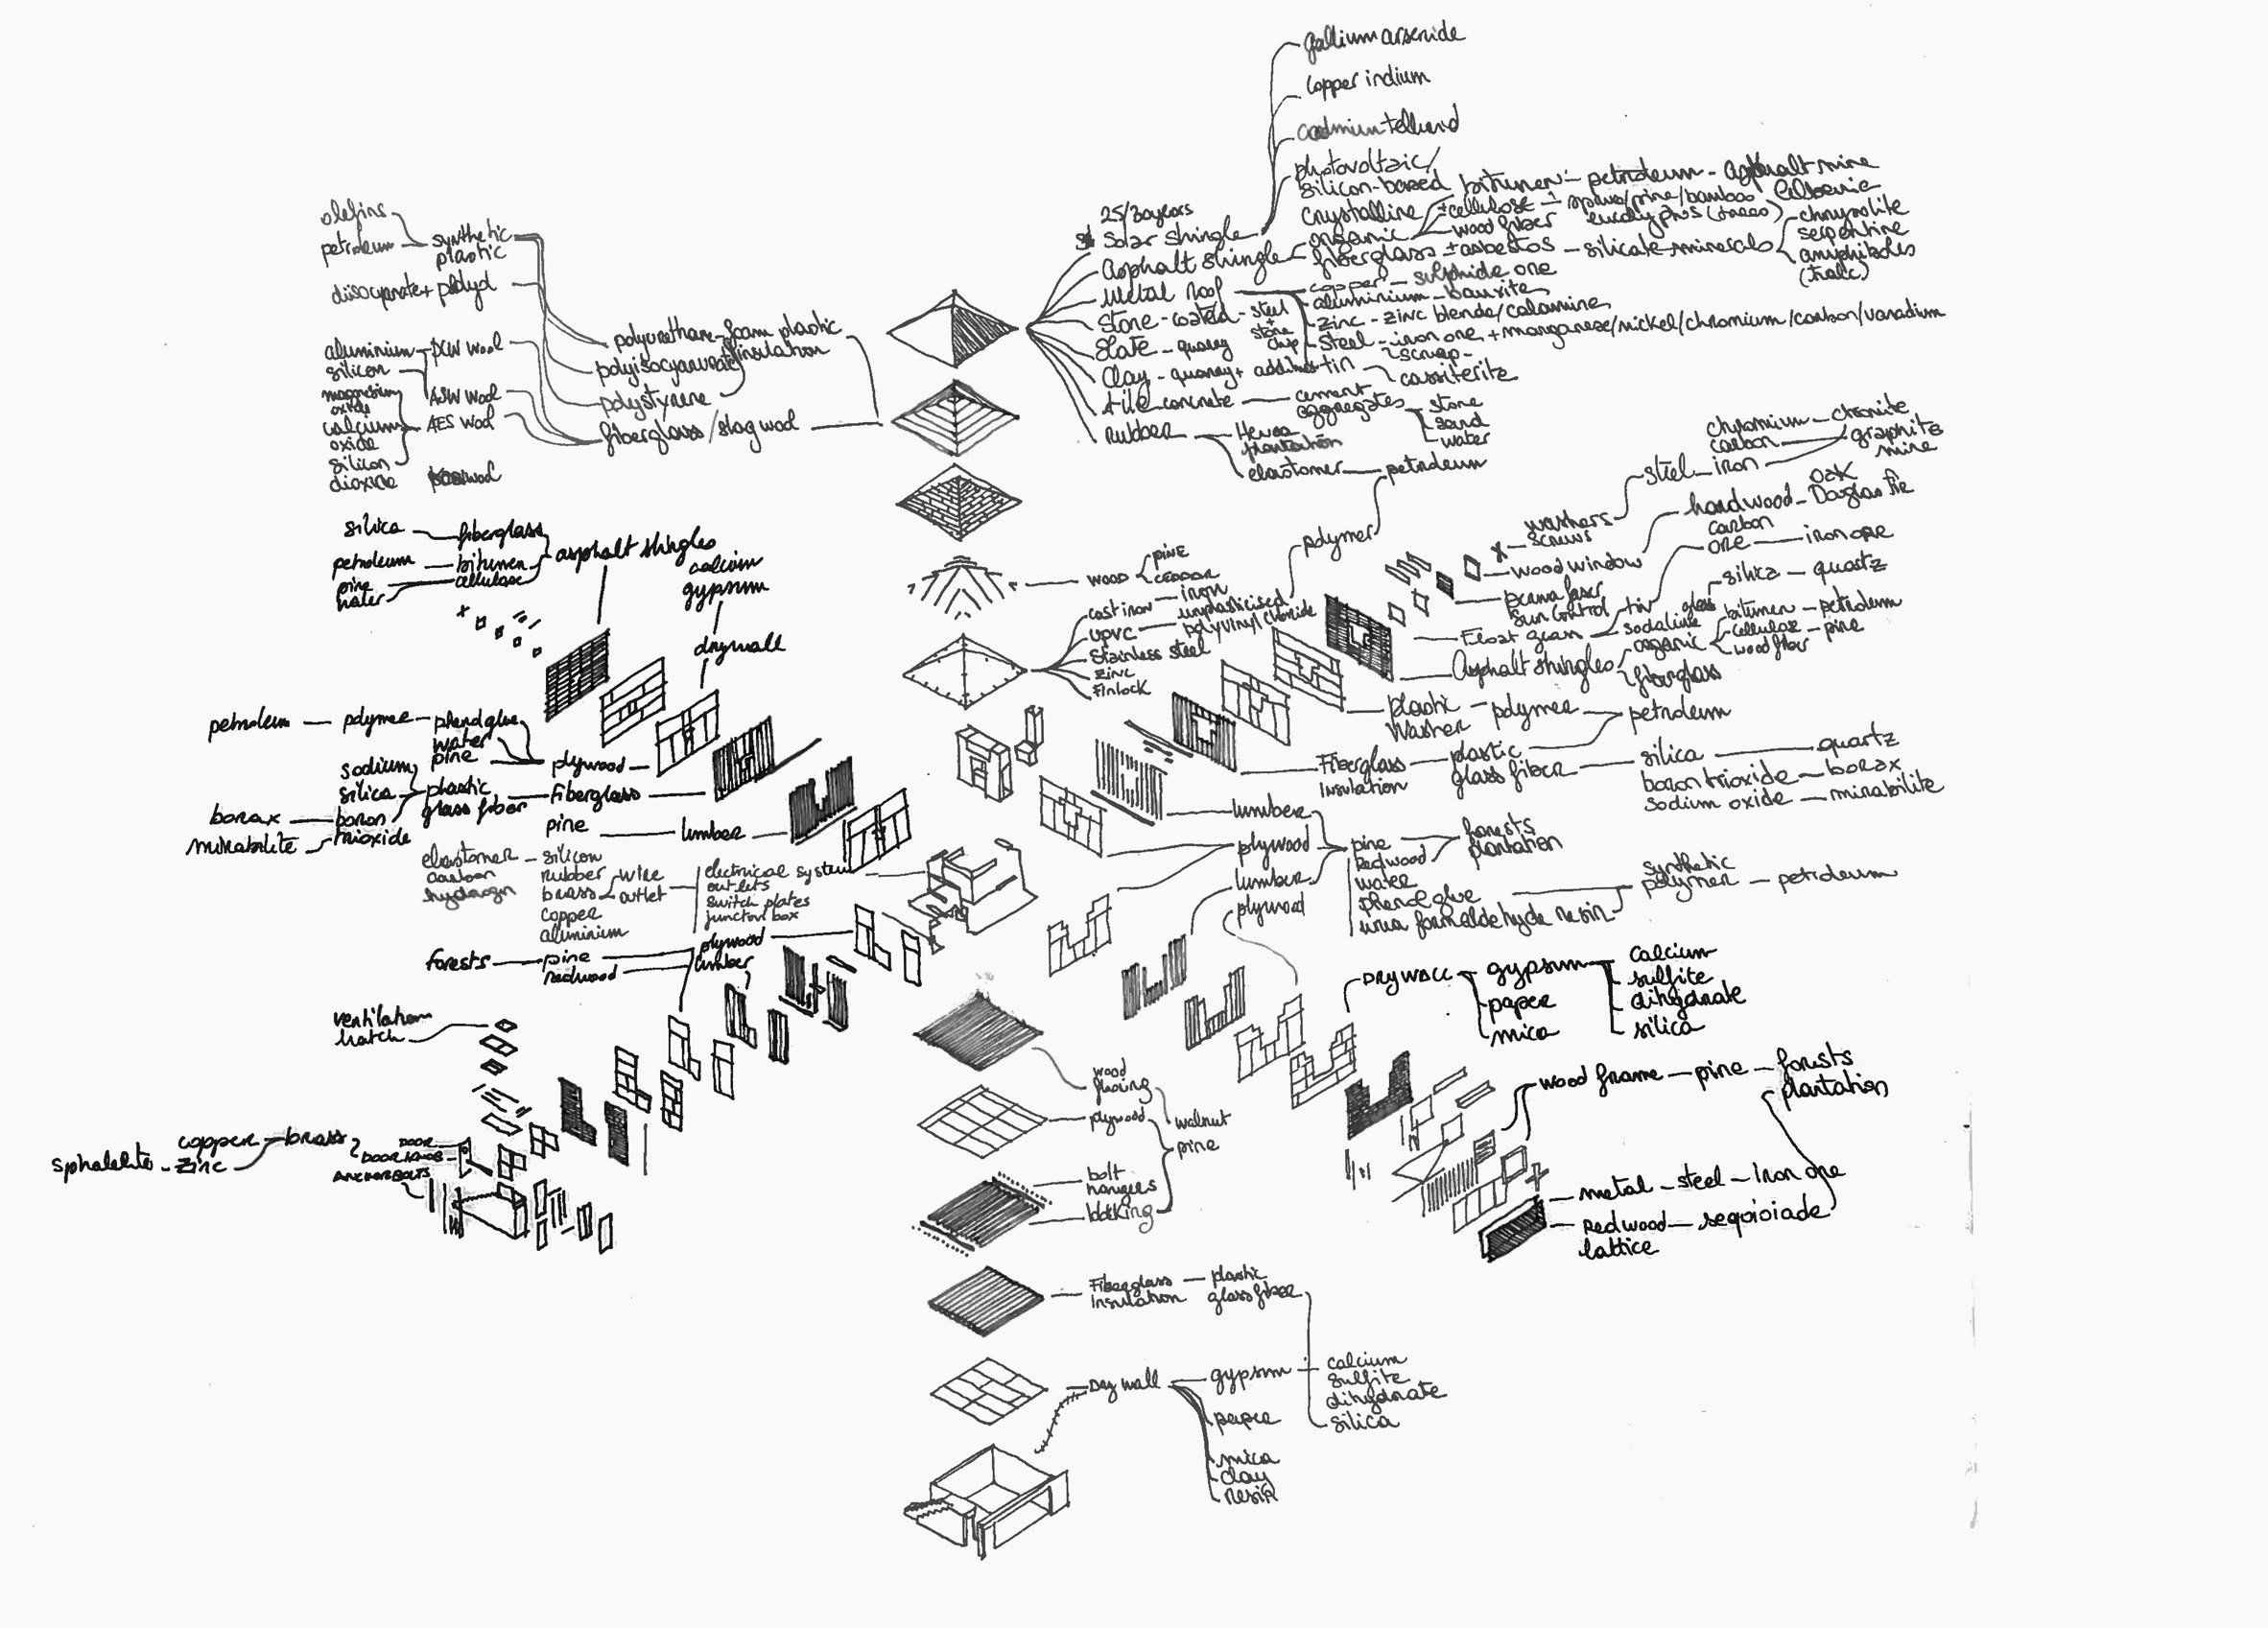 gallium arsenide
copper indium
cadmium tellurid
photovoltaic/
silicon-based
crystalline
25/30years
Solar shingle
bitumen - petroleum - asphalt mine
± cellulose - spruce/pine/bamboo
organic
wood fiber
eucalyphus (trees)
Asphalt shingle
fiberglass ± asbestos - silicate minerals
chrysolite
serpentine
amphiboles
(tralc)
Metal roof
copper - sulphide ore
aluminium - bauxite
zinc - zinc blende/calamine
steel - iron ore + manganese/nickel/chromium/carbon/vanadium
scrap
tin
cassiterite
Stone-coated - steel
+
stone
chip
Slate - quarry
Clay - quarry +
tile concrete - cement
aggregates
stone
sand
water
rubber
Hevea
plantation
elastomer - petroleum
olefins
petroleum - synthetic
plastic
diisocyanate + 
polyurethane - foam plastic
insulation
polystyrene
fiberglass/slag wool
aluminium - PCW wool
silicon
ASW wool
magnesium
oxide
calcium
oxide
silicon
dioxide
AES wool
silica - fiberglass
petroleum - bitumen
pine
water
cellulose
asphalt shingles
calcium
gypsum
drywall
wood
pine
ceddar
cast iron - iron
upvc - unplasticised
polyvinyl chloride
polymer
Stainless steel
zinc
Finlock
chromium - chromite
carbon
graphite
mine
steel - iron
washers
screws
wood window
hardwood -
oak
Douglas fir
carbon
ore - iron ore
sun control
Float glass
tin
sodalime
glass
silica - quartz
Asphalt shingles
organic
bitumen - petroleum
cellulose - pine
wood fiber
fiberglass
plastic - polymer
Washer
petroleum
Fiberglass - plastic
Insulation
glass fiber
silica - quartz
boron trioxide - borax
sodium oxide - mirabilite
petroleum - polymer - phenol glue
water
pine
plywood
sodium
silica
boron
trioxide
plastic
glass fiber
Fiberglass
borax
mirabilite
pine - lumber
elastomer - silicon
carbon
hydrogen
rubber
brass
copper
aluminium
wire
outlet
electrical system
outlets
switch plates
junction box
lumber
plywood
lumber
plywood
pine
Redwood
water
phenol glue
urea formaldehyde resin
forests
plantation
synthetic
polymer - petroleum
forests - pine
redwood
plywood
lumber
ventilation
hatch
DRYWALL - gypsum
paper
mica
calcium
sulfite
dihydrate
silica
wood frame - pine - forests
plantation
metal - steel - iron ore
Redwood - seqoioiade
lattice
sphalelite - zinc
copper - brass
DOOR
DOOR KNOB
ANCHOR BOLTS
wood
flooring
plywood
walnut
pine
bolt
hangers
Fiberglass
Insulation
plastic
glass fiber
Dry wall - gypsum
calcium
sulfite
dihydrate
silica
paper
mica
clay
resin